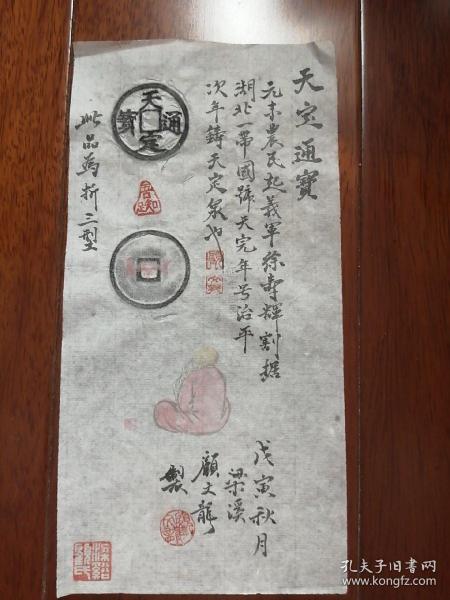 天定通寳
元末農民起義軍徐壽輝割據
湖北一带國號天完年号治平
次年鑄天定泉也
天定通寳
此品為折三型
戊寅秋月
梁溪
顧文龍
製
孔夫子旧书网
kongfz.com